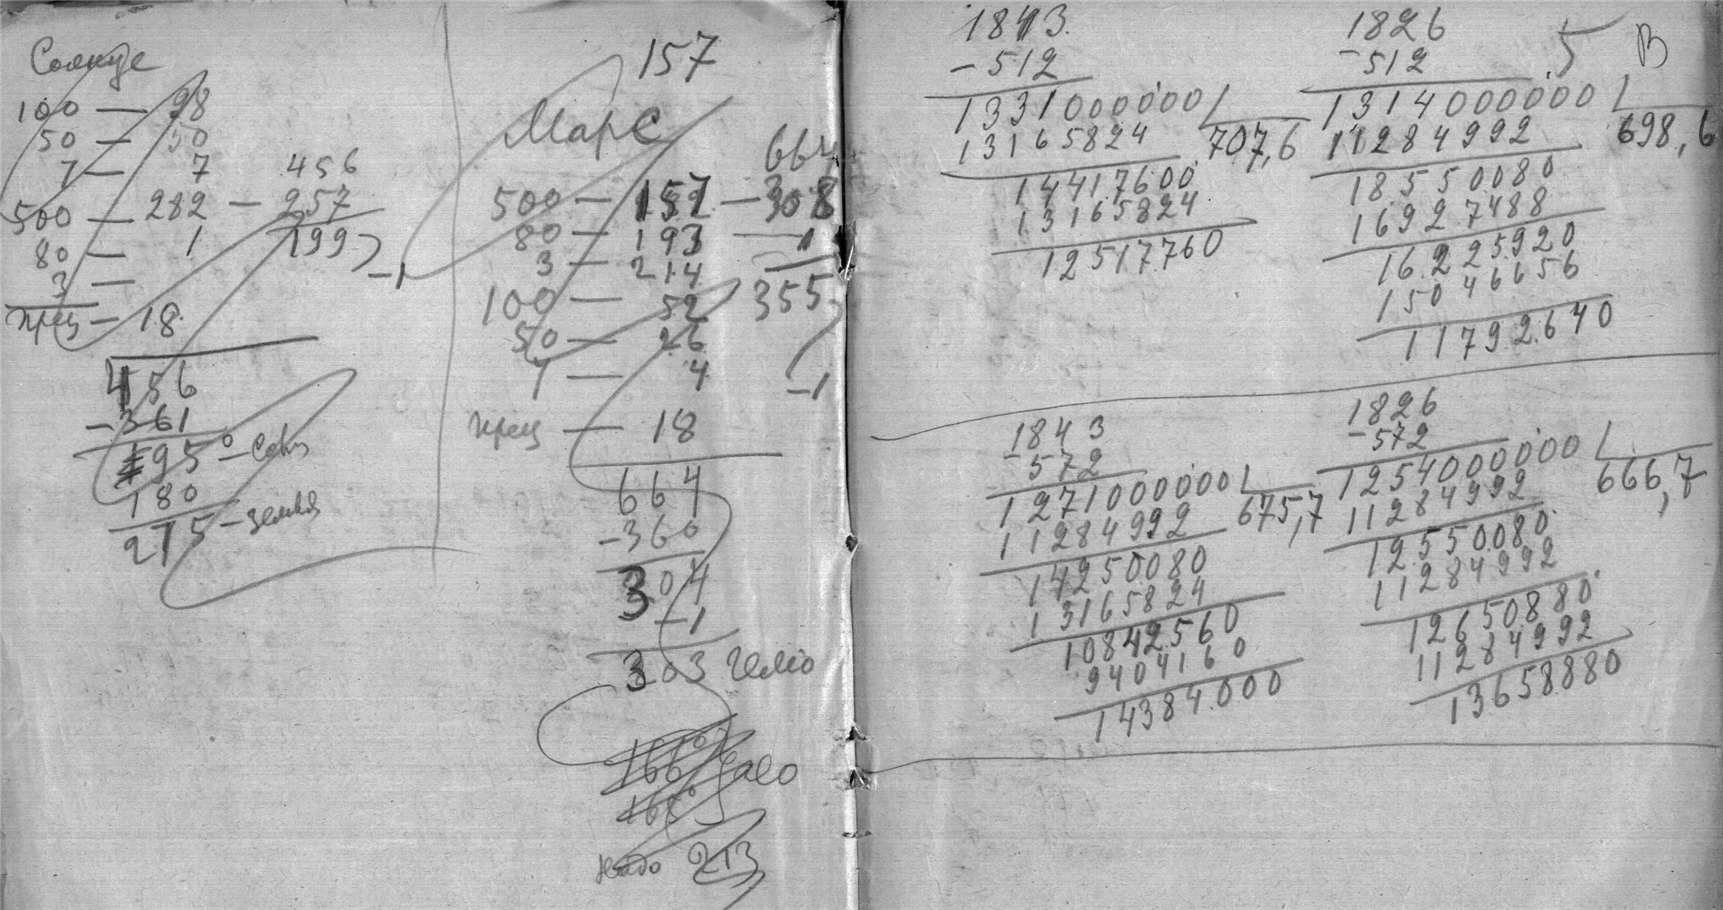 Солнце
100 — 98
50 — 50
7 — 7
500 — 282
80 — 1
3 —
прец — 18
456
- 257
199
-1
456
- 361
195° — Сев
180
275 — земля
157
Марс
664
500 — 157 — 308
80 — 193 — 1
3 — 214
100 — 52
355
50 — 26
7 — 4
-1
прец — 18
664
- 360
304
- 1
303 гелио
надо 213
5 В
1843
- 512
1331000000
707,6
13165824
14417600
13165824
12517760
1826
- 512
1314000000
698,6
11284992
18550080
16927488
16225920
15046656
11792640
1843
- 572
1271000000
675,7
11284992
14250080
13165824
10842560
9404160
14384000
1826
- 572
1254000000
666,7
11284992
12550080
11284992
12650880
11284992
13658880